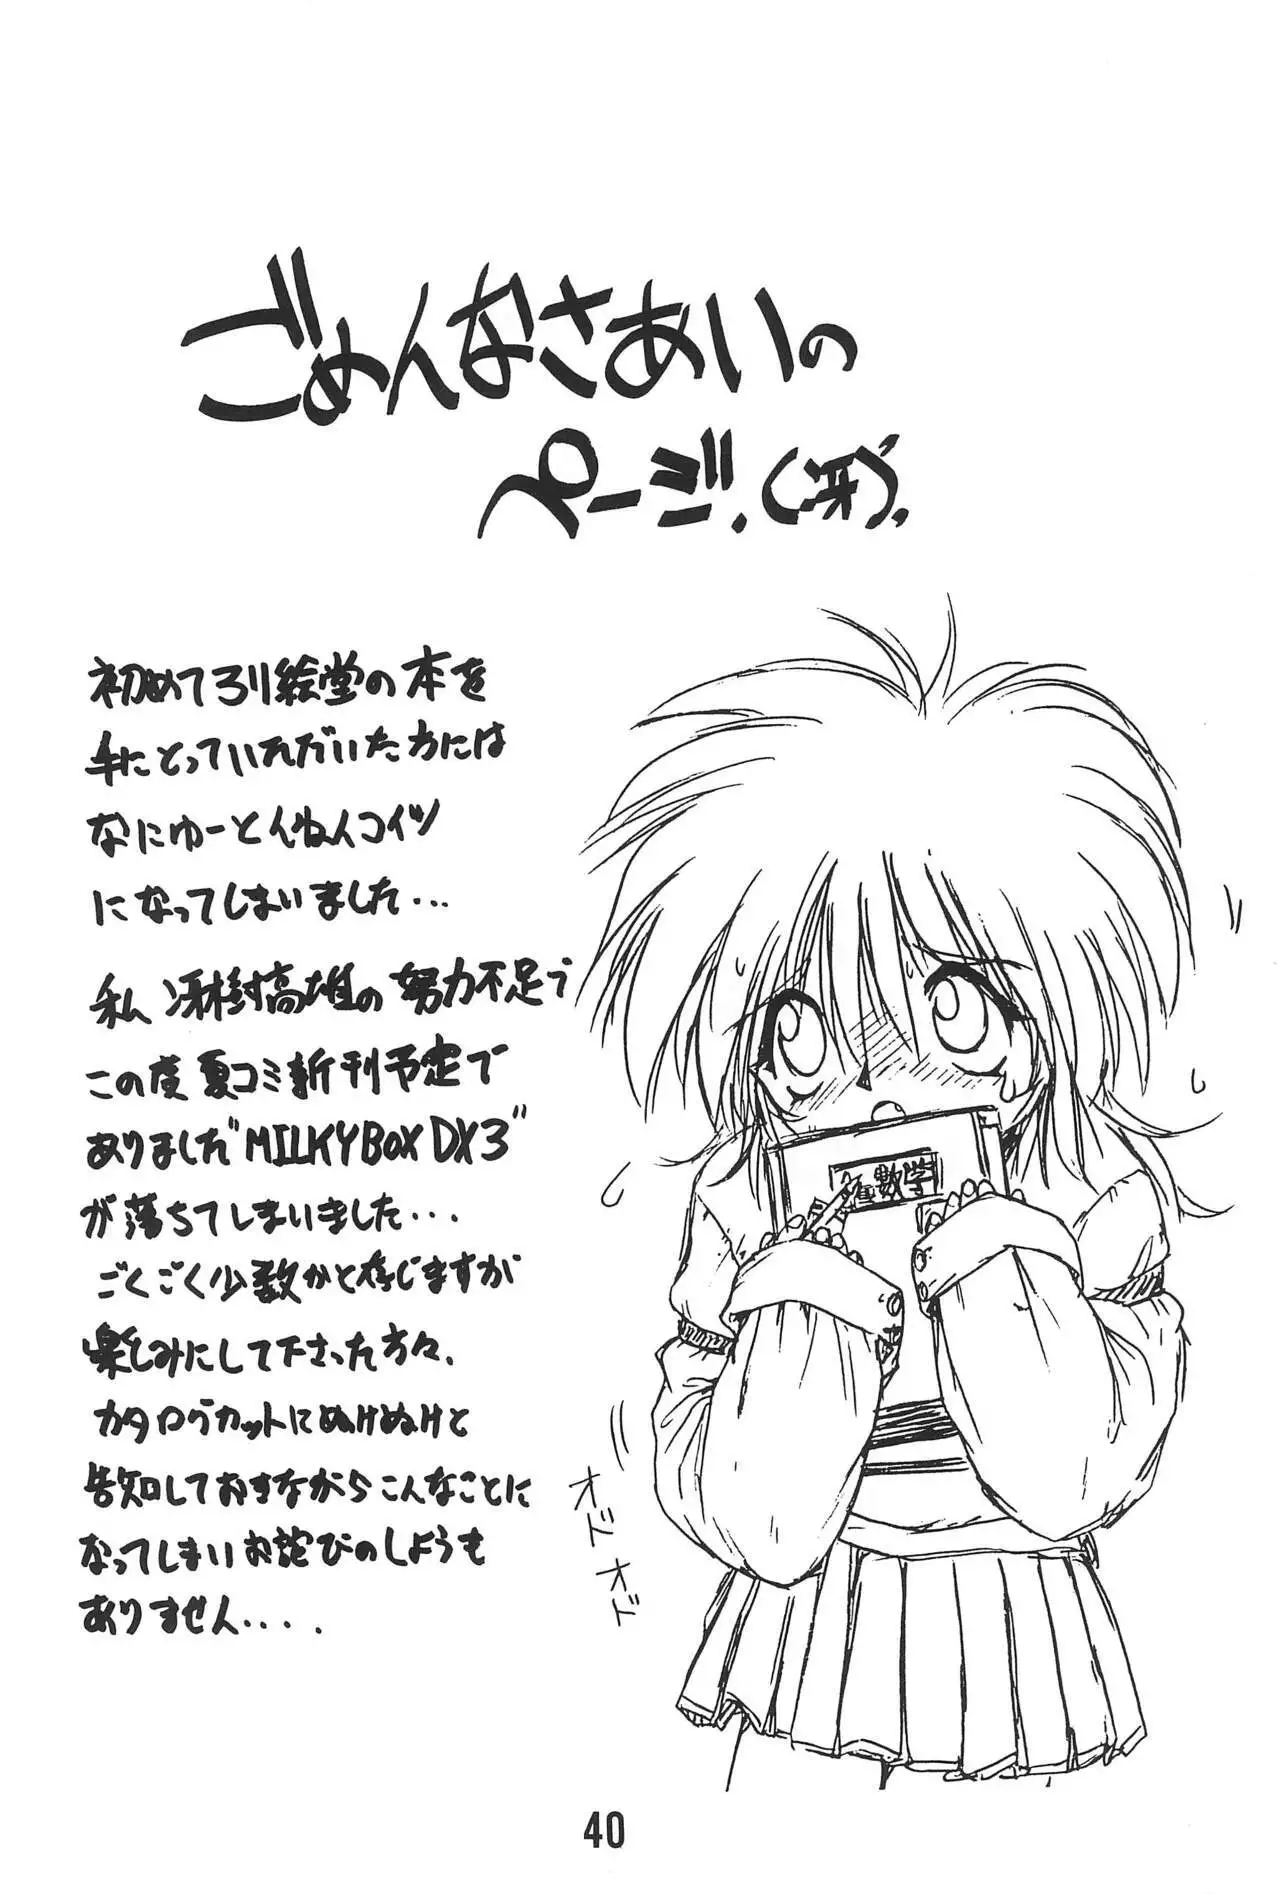 ごめんなさあいの
ページ.(涙).
初めてろり絵堂の本を
手にとっていただいた方には
なにゆーとんねんコイツ
になってしまいました...
私 冴樹高雄の努力不足で
この度夏コミ新刊予定で
ありました"MILKYBOX DX3"
が落ちてしまいました...
ごくごく少数かと存じますが
楽しみにして下さった方々、
カタログカットにぬけぬけと
告知しておきながらこんなことに
なってしまいお詫びのしようも
ありません....
数学
オドオド
40